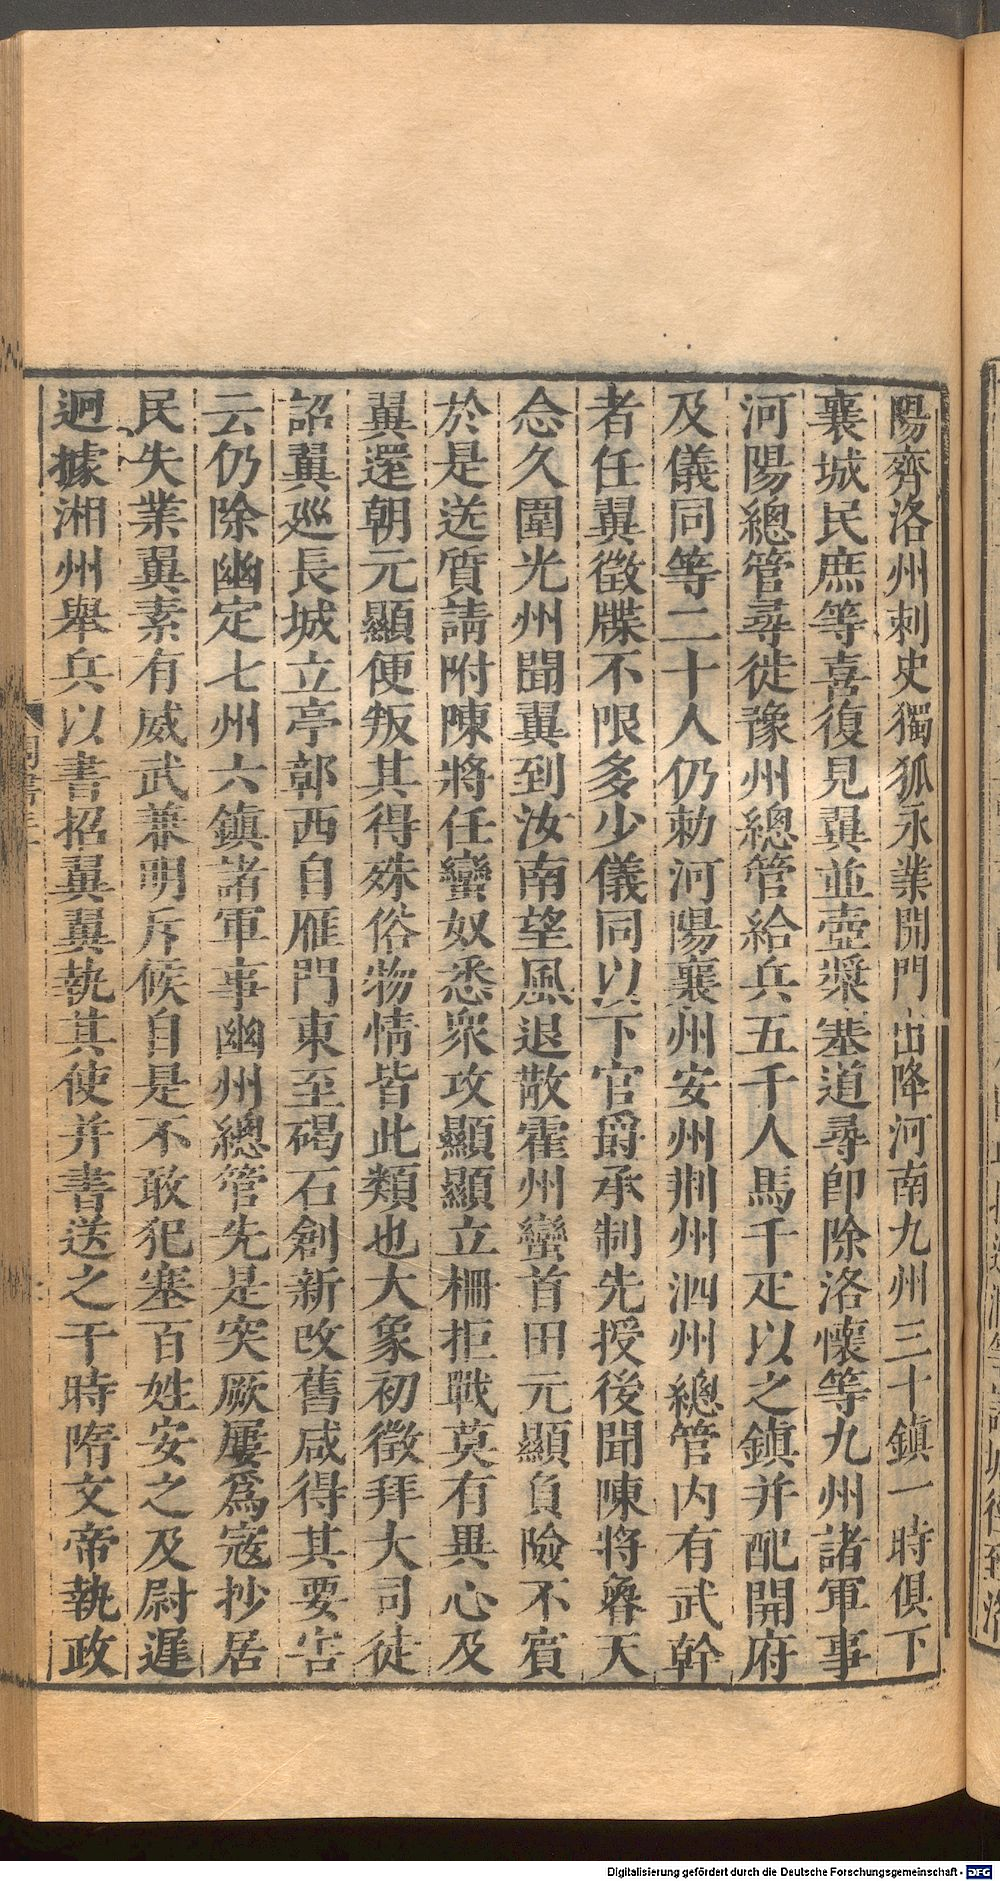 陽齊洛州刺史獨狐永業開門出降河南九州三十鎮一時俱下
襄城民庶等喜復見翼並壺漿塞道尋卽除洛懷等九州諸軍事
河陽總管尋徙豫州總管給兵五千人馬千疋以之鎮并配開府
及儀同等二十人仍勑河陽襄州安州荆州泗州總管内有武幹
者任翼徵牒不限多少儀同以下官爵承制先授後聞陳將魯天
念久圍光州聞翼到汝南望風退散霍州蠻首田元顯負險不賓
於是送質請附陳將任蠻奴悉衆攻顯顯立柵拒戰莫有異心及
翼還朝元顯便叛其得殊俗物情皆此類也大象初徵拜大司徒
詔翼廵長城立亭鄣西自雁門東至碣石創新改舊咸得其要害
云仍除幽定七州六鎮諸軍事幽州總管先是突厥屢爲寇抄居
民失業翼素有威武兼明斥候自是不敢犯塞百姓安之及尉遲
迥據湘州舉兵以書招翼翼執其使并書送之于時隋文帝執政
Digitalisierung gefördert durch die Deutsche Forschungsgemeinschaft - DFG